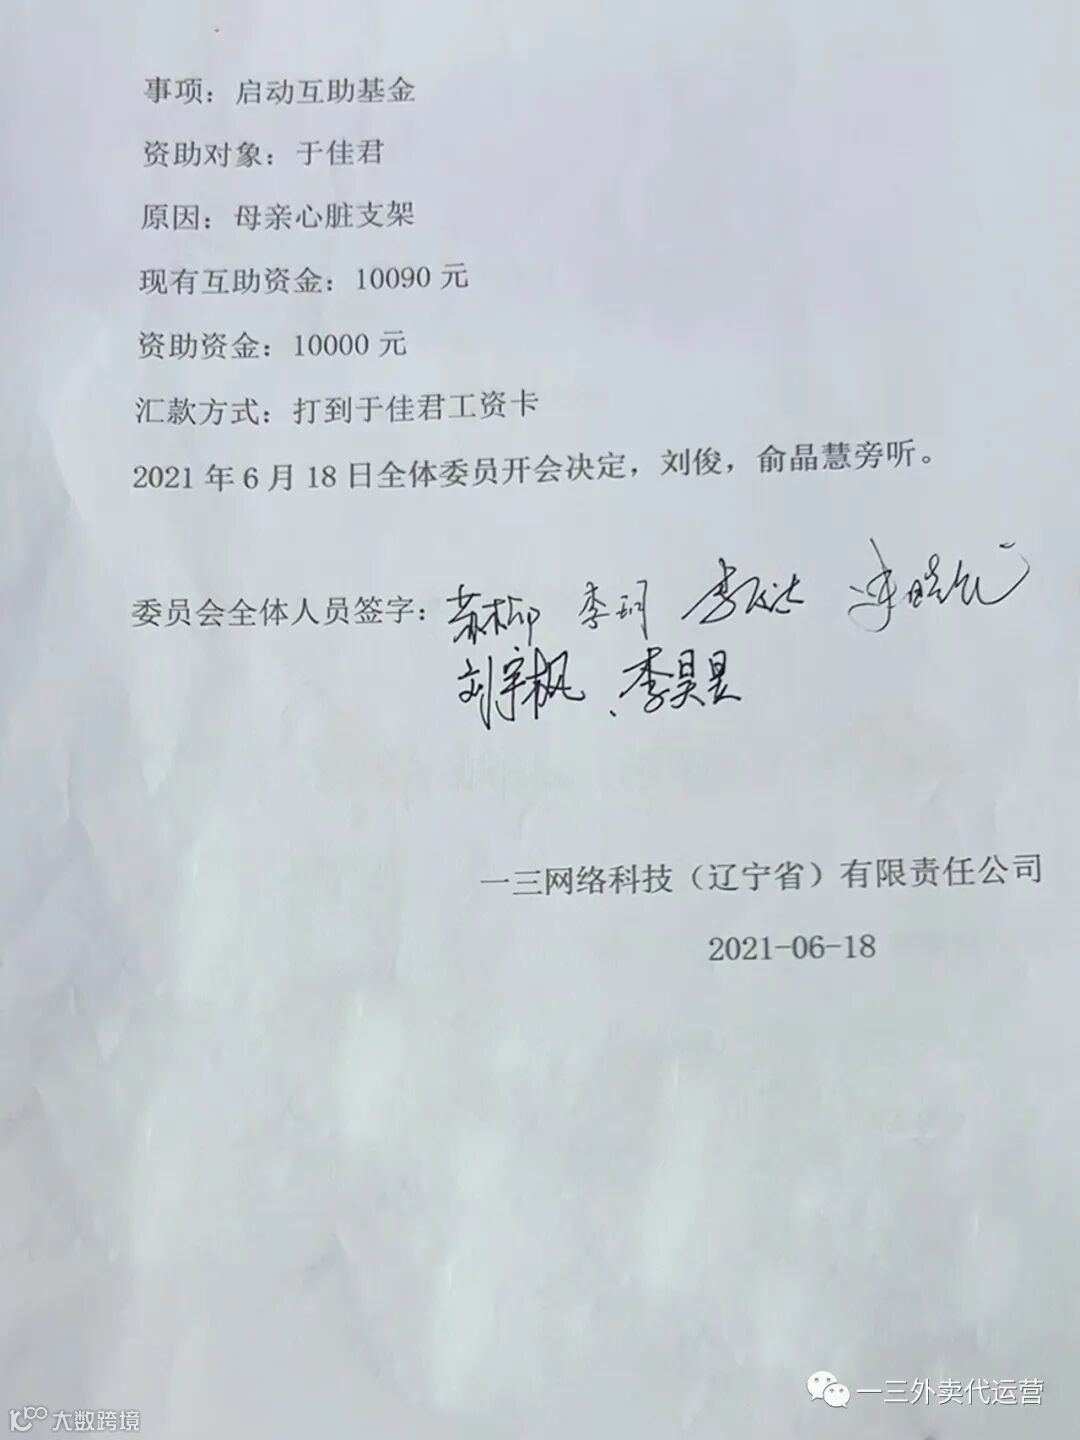 事项：启动互助基金
资助对象：于佳君
原因：母亲心脏支架
现有互助资金：10090 元
资助资金：10000 元
汇款方式：打到于佳君工资卡
2021 年 6 月 18 日全体委员开会决定，刘俊，俞晶慧旁听。
委员会全体人员签字：苏柳 李珂
刘宇枫、李昊昱
一三网络科技（辽宁省）有限责任公司
2021-06-18
一三外卖代运营
大数跨境